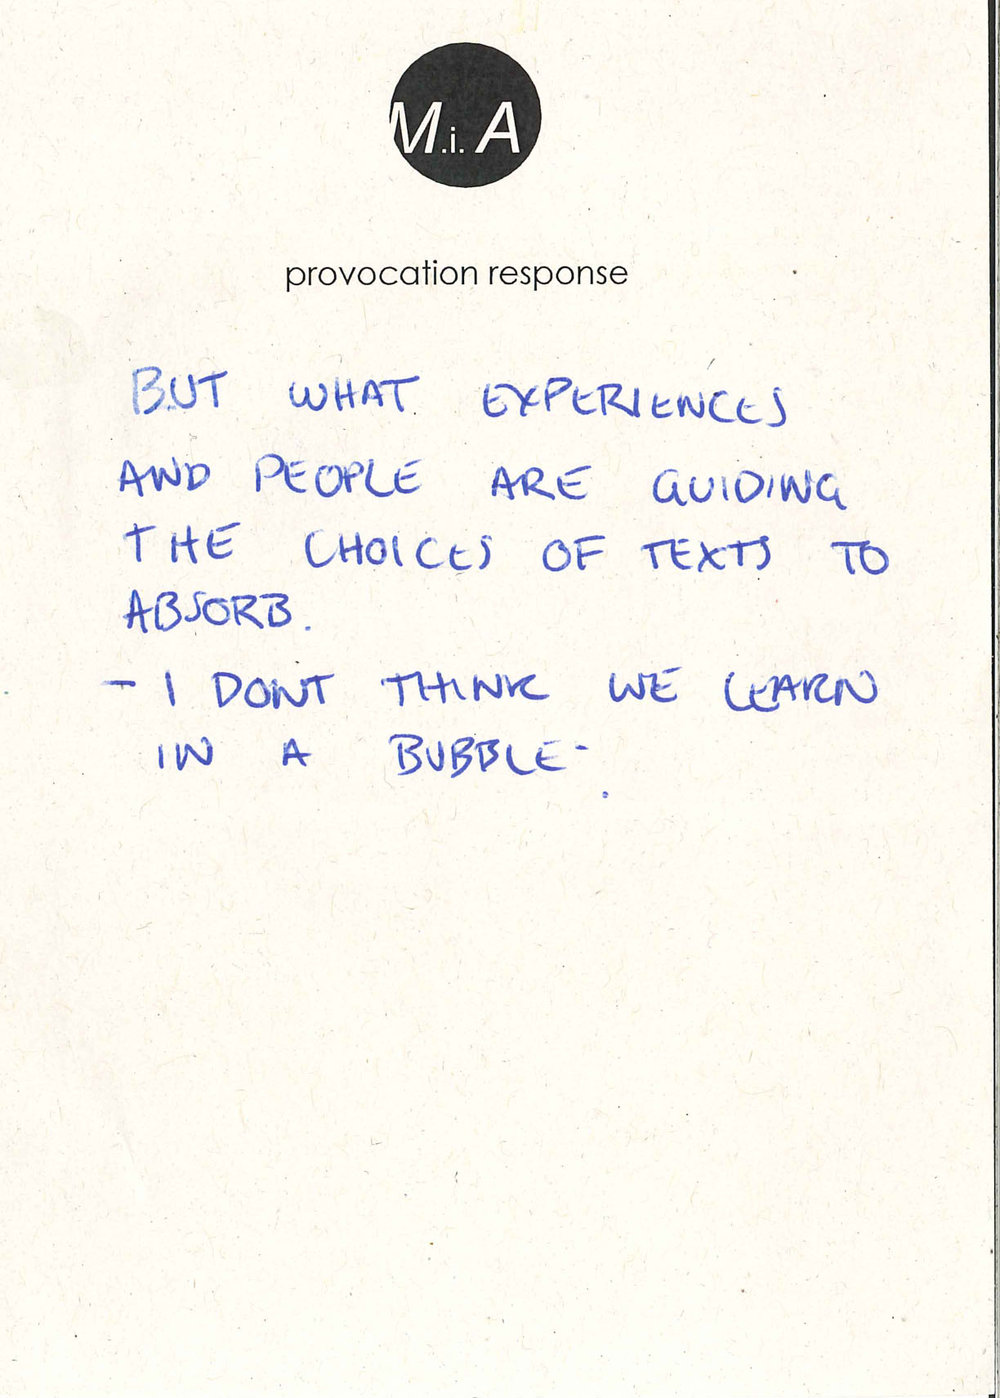 M.i.A
provocation response
BUT WHAT EXPERIENCES
AND PEOPLE ARE GUIDING
THE CHOICES OF TEXTS TO
ABSORB.
- I DONT THINK WE LEARN
IN A BUBBLE-.